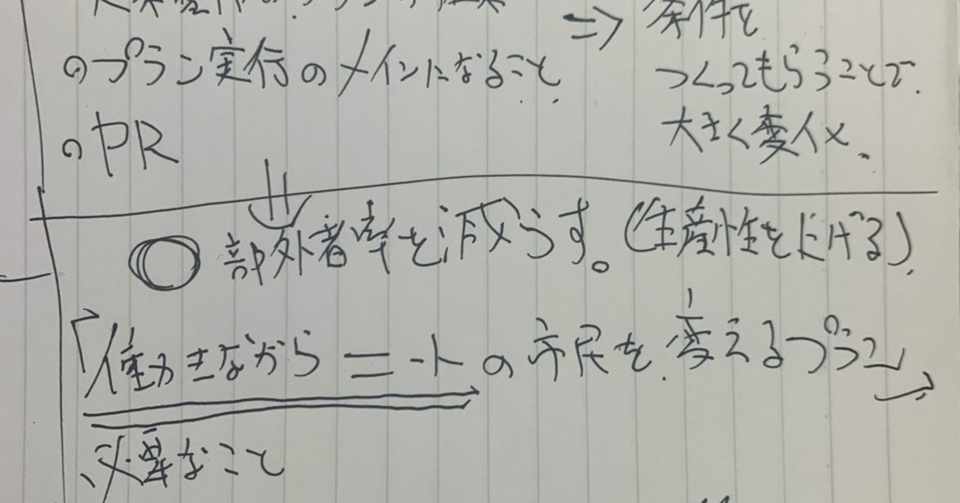 のプラン実行のメインになること
のPR
⇒ 条件を
つくってもらうことで、
大きく変イメ、
◯ 部外者率を減らす。(生産性を上げる)
「働きながらニートの市民を変えるプラン」
必要なこと